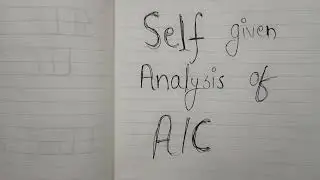 Self given
Analysis of
A/C